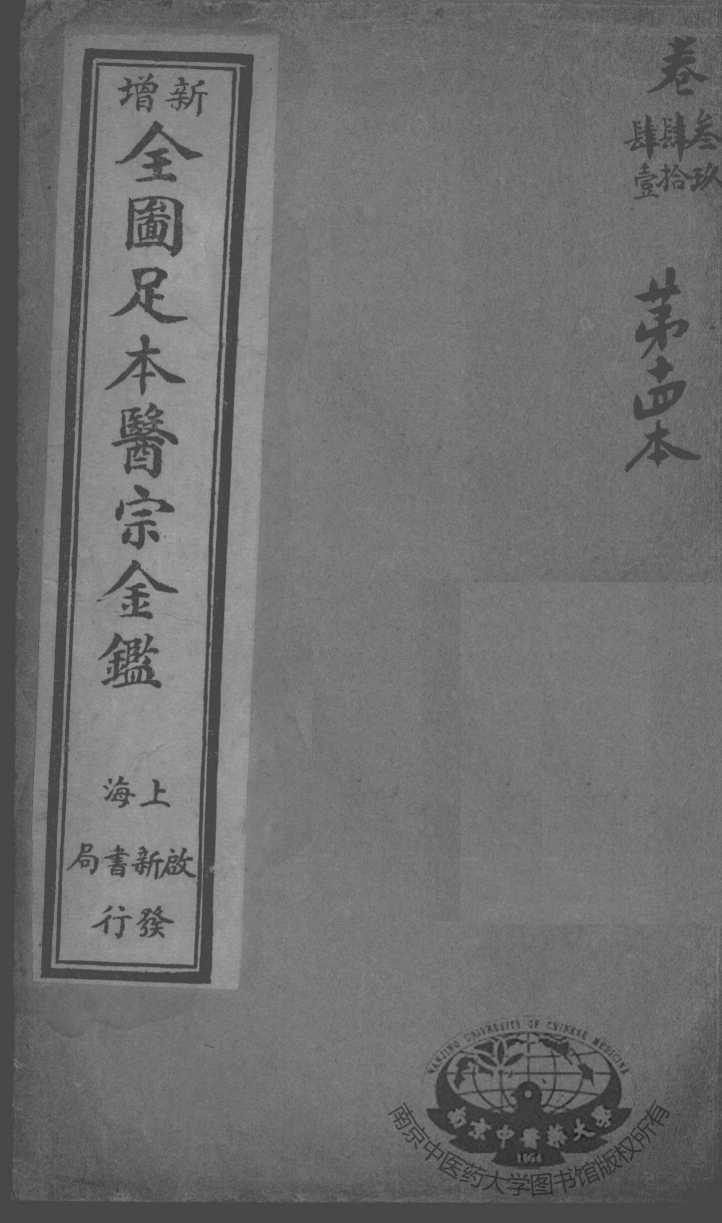 卷
叁玖
肆拾
肆壹
苐十四本
新增
全圖足本醫宗金鑑
上海
啟新書局
發行
NANJING UNIVERSITY OF CHINESE MEDICINE
南京中醫藥大學
1954
南京中医药大学图书馆版权所有